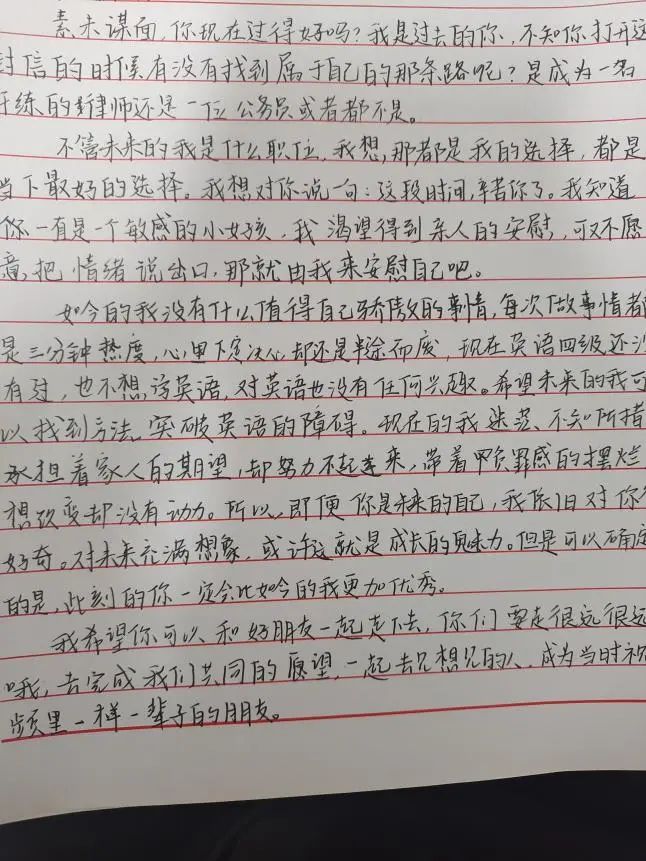 素未谋面,你现在过得好吗?我是过去的你,不知你打开这
封信的时候有没有找到属于自己的那条路呢?是成为一名
干练的律师还是一位公务员或者都不是。
不管未来的我是什么职位,我想,那都是我的选择,都是
当下最好的选择。我想对你说一句:这段时间,辛苦你了。我知道
你一有是一个敏感的小女孩,我渴望得到亲人的安慰,可又不愿
意把情绪说出口,那就由我来安慰自己吧。
如今的我没有什么值得自己骄傲的事情,每次做事情都
是三分钟热度,心里下定决心却还是半途而废,现在英语四级还没
有过,也不想学英语,对英语也没有任何兴趣。希望未来的我可
以找到方法,突破英语的障碍。现在的我迷茫、不知所措
承担着家人的期望,却努力不起来,带着负罪感的摆烂
想改变却没有动力。所以,即便你是未来的自己,我依旧对你
好奇。对未来充满想象,或许这就是成长的魅力。但是可以确定
的是,此刻的你一定会比如今的我更加优秀。
我希望你可以和好朋友一起走下去,你们要走很远很远
哦,去完成我们共同的愿望,一起去见想见的人,成为当时视
频里一样一辈子的朋友。